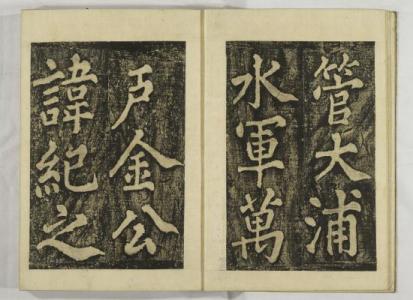 管大浦
水軍萬
戶金公
諱紀之